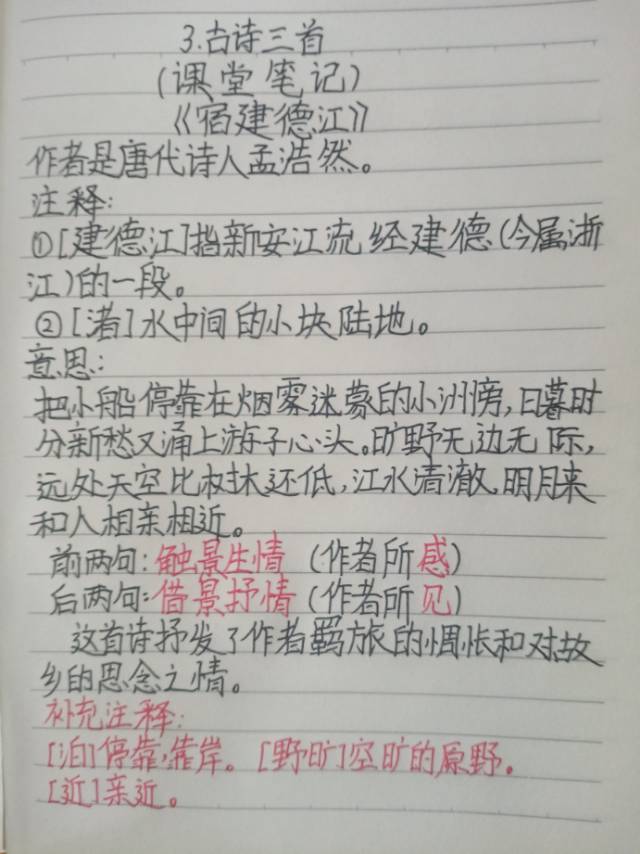 3.古诗三首
(课堂笔记)
《宿建德江》
作者是唐代诗人孟浩然。
注释:
①[建德江]指新安江流经建德(今属浙
江)的一段。
②[渚]水中间的小块陆地。
意思:
把小船停靠在烟雾迷蒙的小洲傍,日暮时
分新愁又涌上游子心头。旷野无边无际,
远处天空比树木还低,江水清澈,明月来
和人相亲相近。
前两句:触景生情(作者所感)
后两句:借景抒情(作者所见)
这首诗抒发了作者羁旅的惆怅和对故
乡的思念之情。
补充注释:
[泊]停靠,靠岸。[野旷]空旷的原野。
[近]亲近。